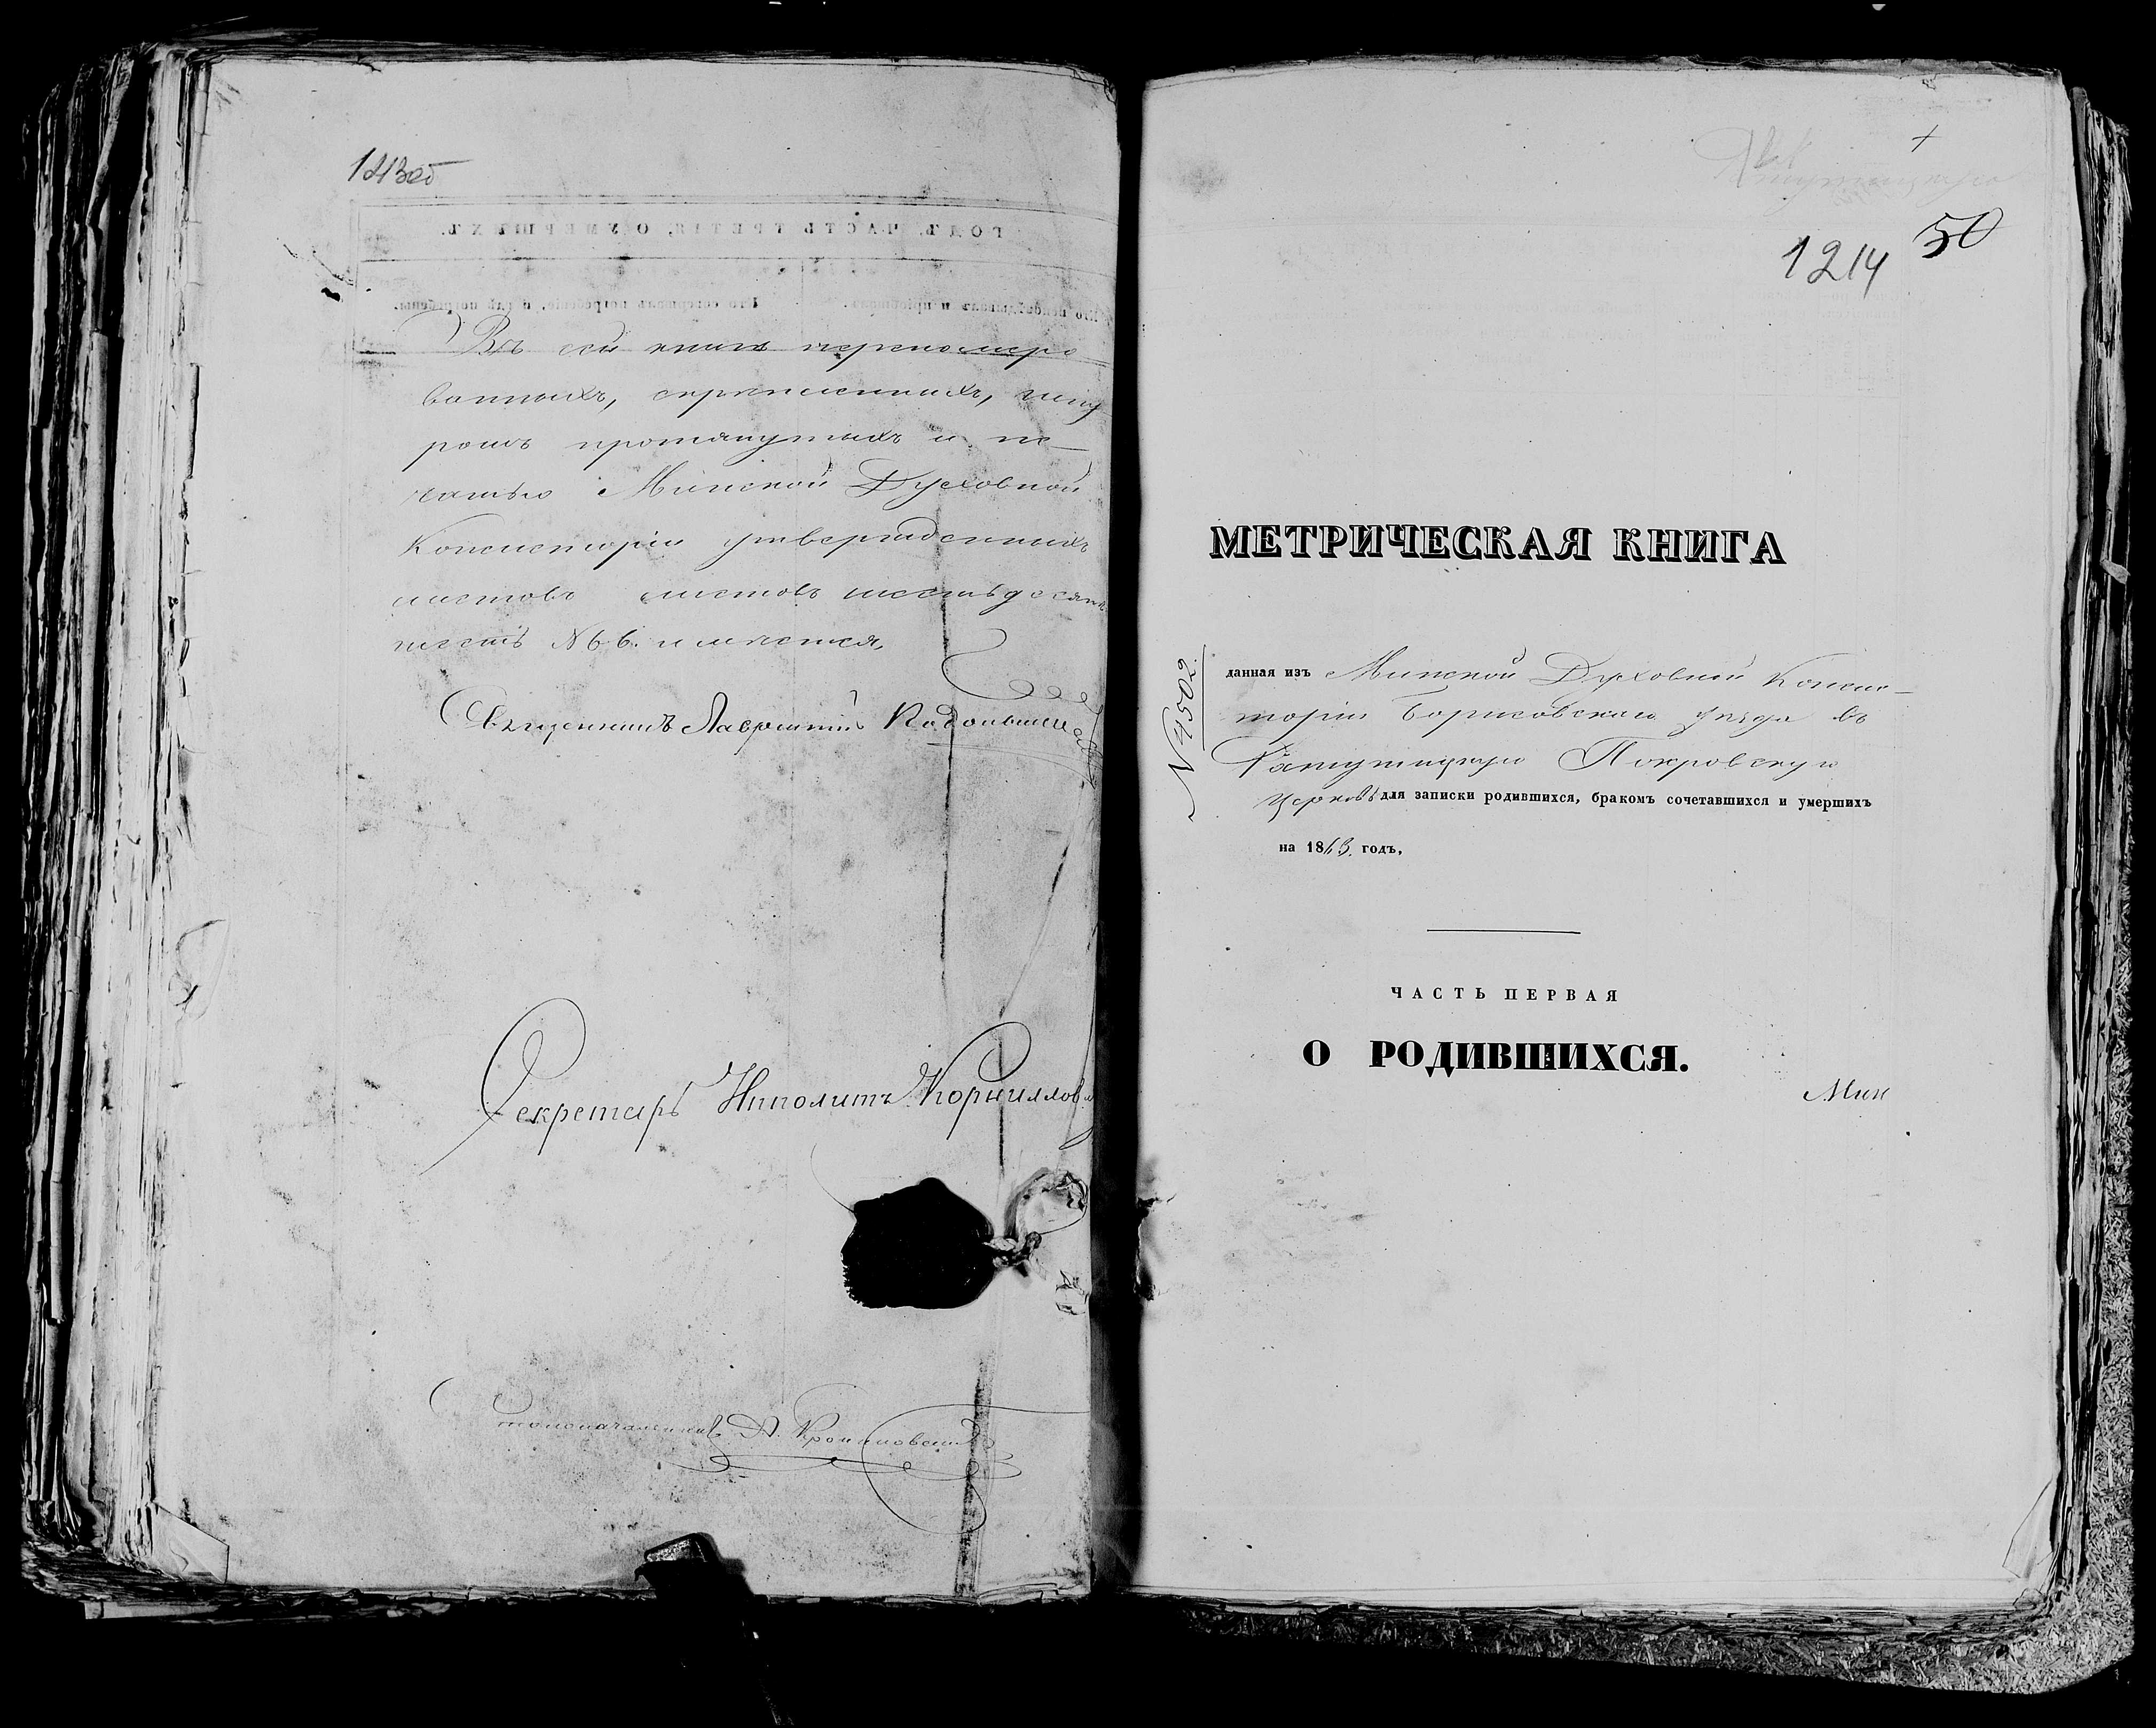 Въ сей книгѣ перенумеро
ванныхъ, скрѣпленныхъ, шну
ромъ протянутыхъ и пе
чатью Минской Духовной
Консисторіи утвержденныхъ
листовъ листовъ шестьдесятъ
шесть №66. имѣется,
Священникъ Лаврентій
Секретарь Ипполитъ Корнилло
Столоначальникъ
ГОДЪ, ЧАСТЬ ТРЕТІЯ, О УМЕРШИХЪ.
Кто исповѣдывалъ и пріобщалъ. Кто совершалъ погребеніе, и гдѣ погребены.
+
50
1214
МЕТРИЧЕСКАЯ КНИГА
№4502
данная изъ Минской Духовной Консис-
торіи Борисовскаго уѣзда въ
Покровскую
церковь для записки родившихся, бракомъ сочетавшихся и умершихъ
на 1863. годъ,
ЧАСТЬ ПЕРВАЯ
О РОДИВШИХСЯ.
Мин